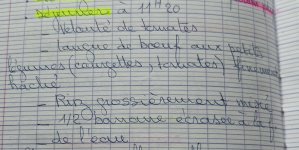 . Déjeuner à 11H20
- Velouté de tomates
- Langue de boeuf aux petits
légumes (courgettes, tomates) finement
haché
- Riz grossièrement mixé
- 1/2 banane écrasée à la f
- de l'eau